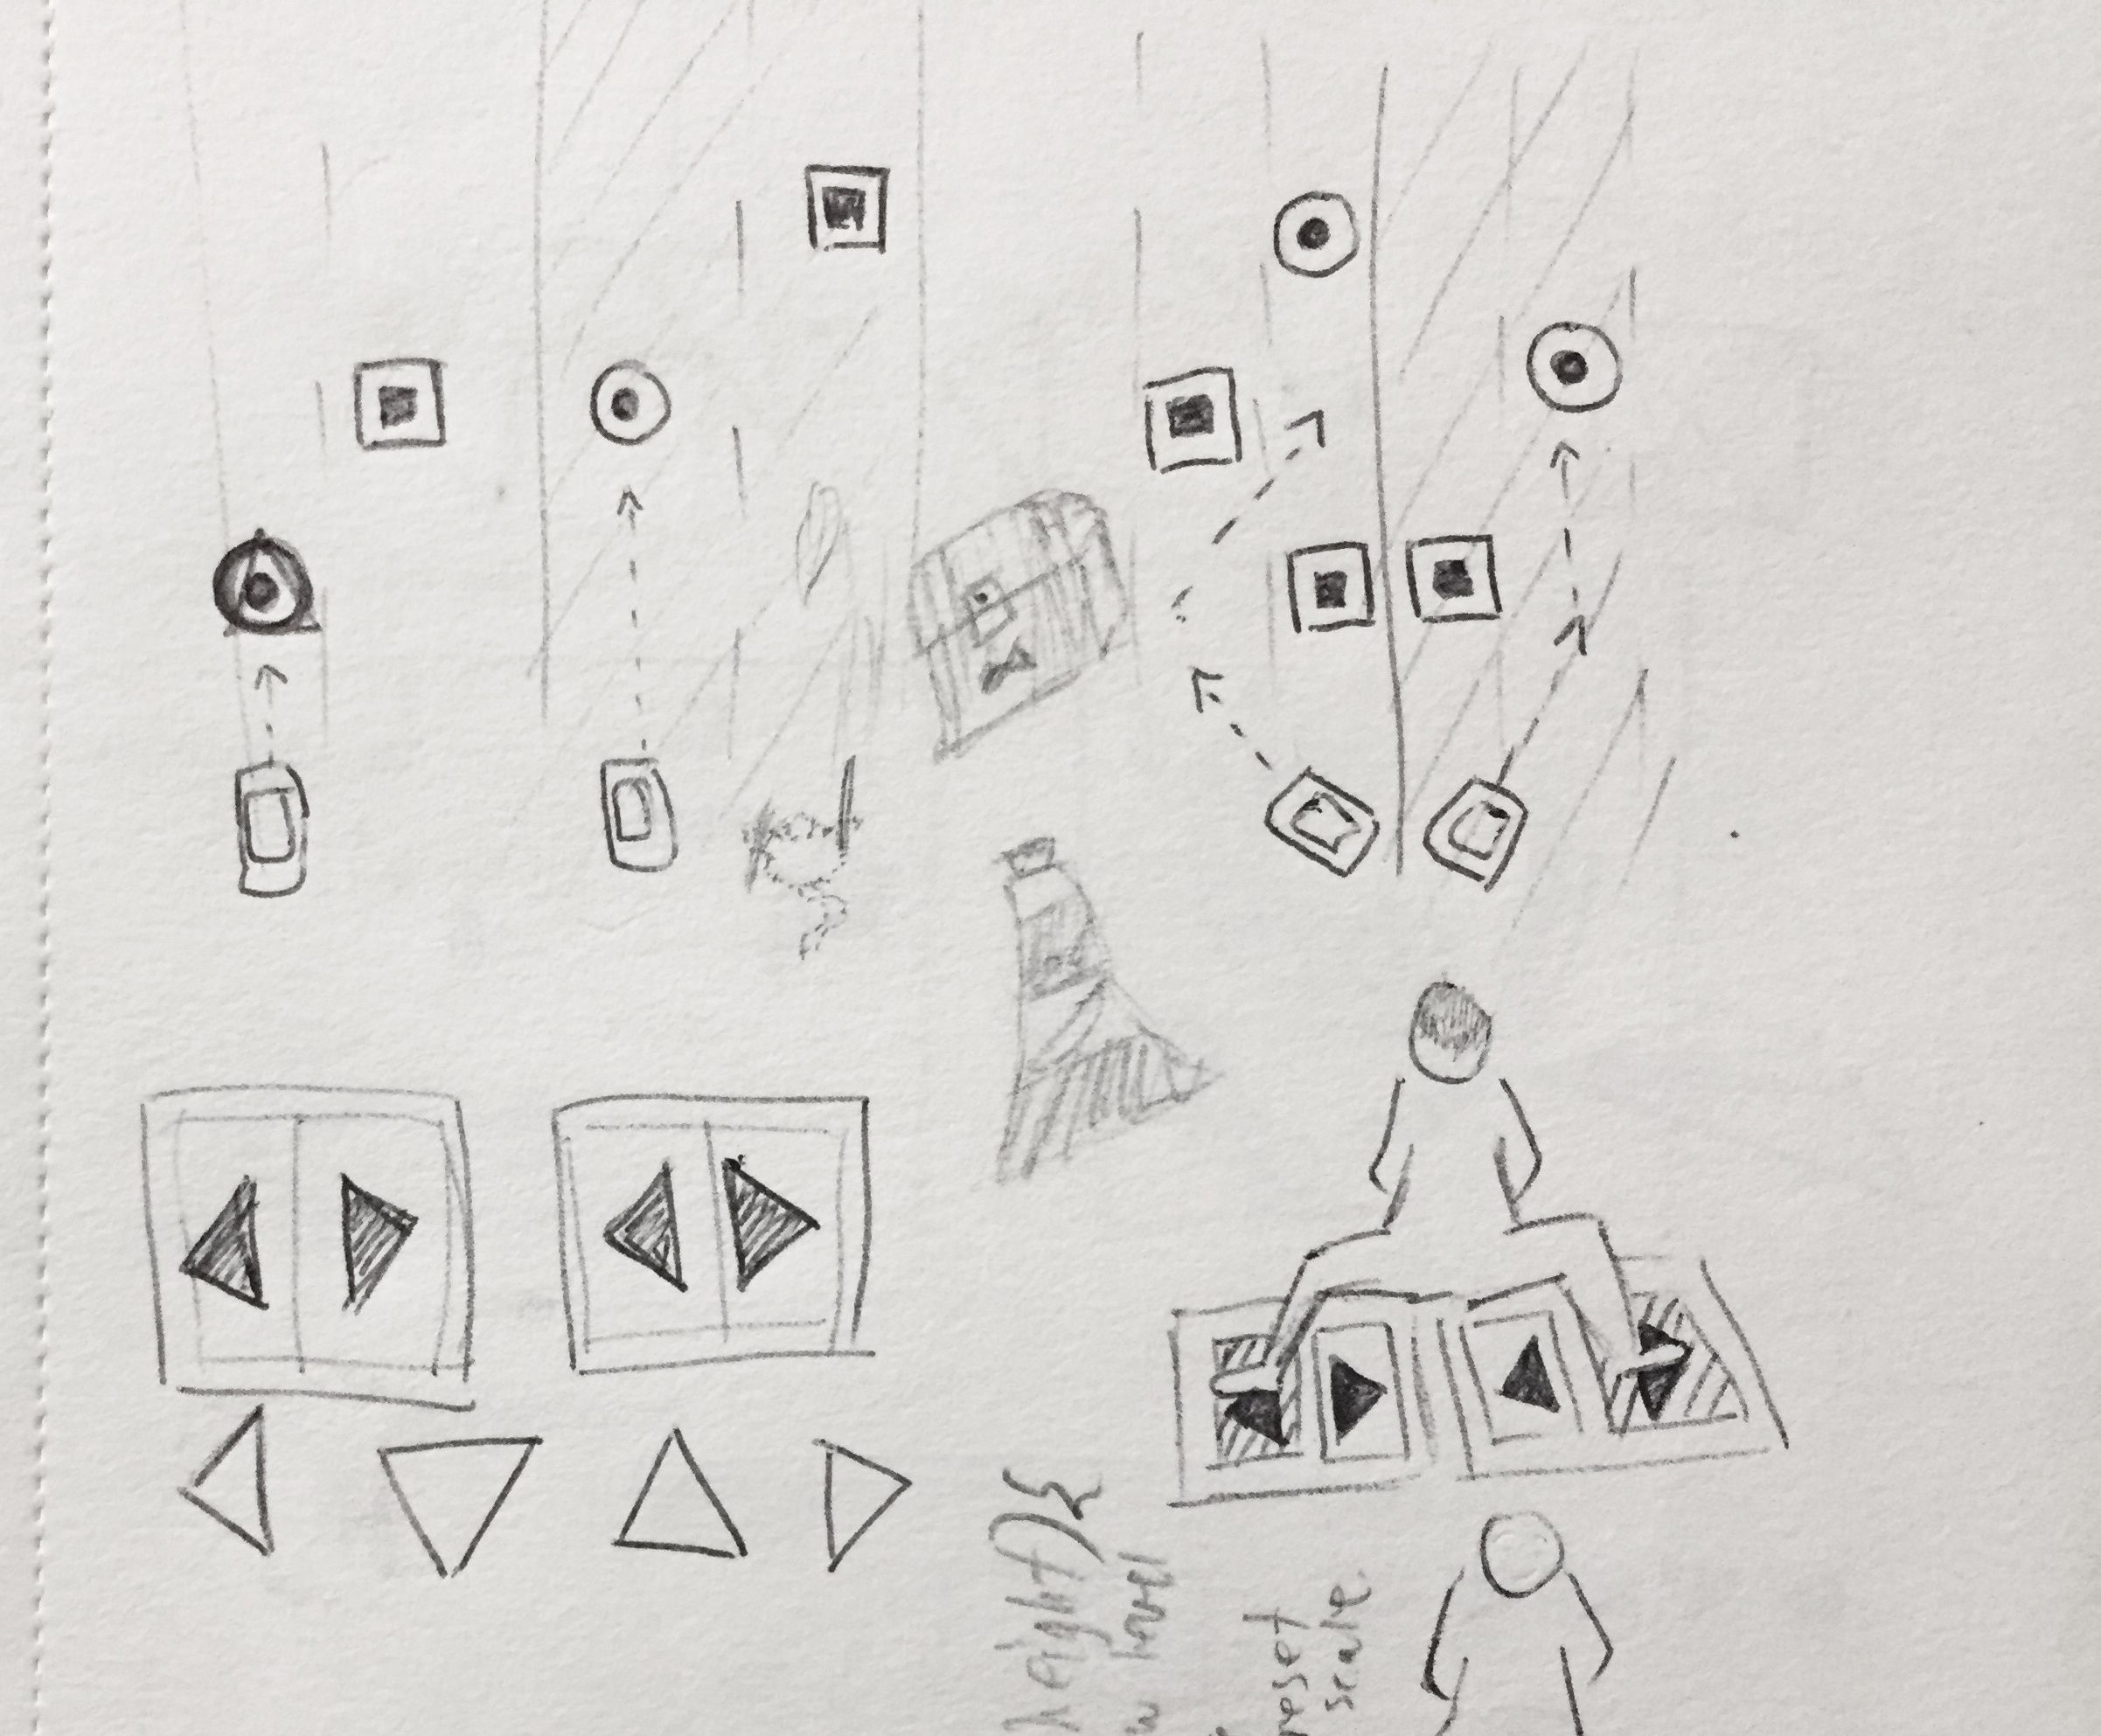 height){
w level
reset
scale.